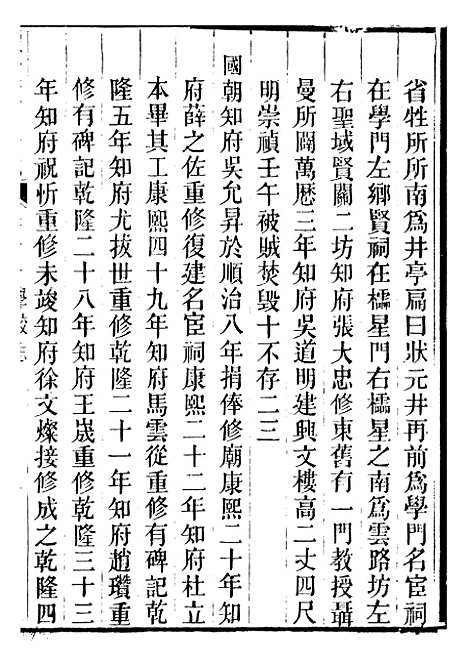 省牲所所南爲井亭扁曰狀元井再前爲學門名宦祠
在學門左鄉賢祠在櫺星門右櫺星之南爲雲路坊左
右聖域賢關二坊知府張大忠修東舊有一門教授聶
曼所闢萬厯三年知府吳道明建興文樓高二丈四尺
明崇禎壬午被賊焚毀十不存二三
國朝知府吳允昇於順治八年捐俸修廟康熙二十年知
府薛之佐重修復建名宦祠康熙二十二年知府杜立
本畢其工康熙四十九年知府馬雲從重修有碑記乾
隆五年知府尤拔世重修乾隆二十一年知府趙瓚重
修有碑記乾隆二十八年知府王晟重修乾隆三十三
年知府祝忻重修未竣知府徐文燦接修成之乾隆四
學校